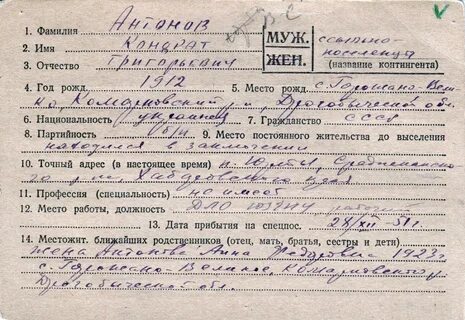 1. Фамилия Антонов
МУЖ.
ЖЕН.
ссыльно-
поселенцы
(название контингента)
2. Имя Кондрат
3. Отчество Григорьевич
4. Год рожд. 1912 5. Место рожд. с. Горожано-Вели-
ко Комарновский р-н Дрогобычской обл.
6. Национальность украинец 7. Гражданство СССР
8. Партийность б/п 9. Место постоянного жительства до выселения
находился в заключении
10. Точный адрес (в настоящее время) п. Среднеканско-
го р-на Хабаровского края
11. Профессия (специальность) не имеет
12. Место работы, должность рабочий
13. Дата прибытия на спецпос. 51 г.
14. Местожит. ближайших родственников (отец, мать, братья, сестры и дети)
жена Анна Федоровна 1923 г.
с. Горожано-Великое, Комарновского р-
Дрогобычской обл.